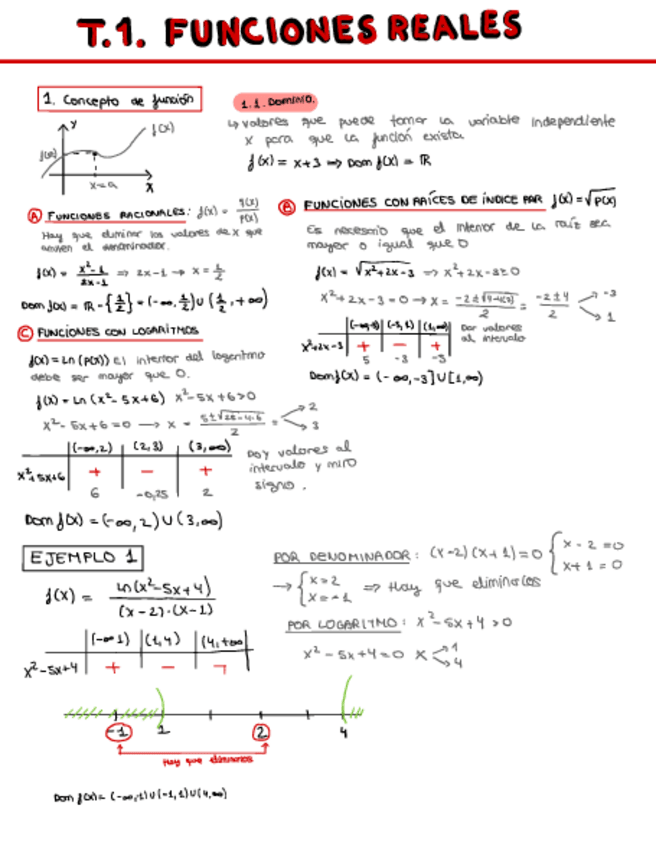 T.1. FUNCIONES REALES
1. Concepto de función
y
f(x)
f(a)
x=a
x
1.1. DOMINIO.
↳ valores que puede tomar la variable independiente
x para que la función exista.
f(x) = x+3 ⇒ Dom f(x) = ℝ
Ⓐ FUNCIONES RACIONALES: f(x) = q(x)/p(x)
Hay que eliminar los valores de x que
anulen el denominador.
f(x) = x²-1/2x-1 ⇒ 2x-1 → x = 1/2
Dom f(x) = ℝ - {1/2} = (-∞, 1/2) ∪ (1/2, +∞)
Ⓑ FUNCIONES CON RAÍCES DE ÍNDICE PAR f(x)=√P(x)
Es necesario que el interior de la raíz sea
mayor o igual que 0
f(x) = √x²+2x-3 ⇒ x²+2x-3≥0
x²+2x-3=0 → x = -2±√4-4(-3)/2 = -2±4/2 -3 1
(-∞,-3) (-3,1) (1,∞)
x²+2x-3 + - +
5 -3 -3
Dar valores
al intervalo
Dom f(x) = (-∞,-3] ∪ [1,∞)
Ⓒ FUNCIONES CON LOGARITMOS
f(x) = Ln (p(x)) El interior del logaritmo
debe ser mayor que 0.
f(x) = Ln (x²-5x+6) x²-5x+6>0
x²-5x+6=0 → x = 5±√25-4·6/2 = 2 3
(-∞,2) (2,3) (3,∞)
x²+5x+6 + - +
6 -0,25 2
Doy valores al
intervalo y miro
signo.
Dom f(x) = (-∞,2) ∪ (3,∞)
EJEMPLO 1
f(x) = Ln(x²-5x+4)/(x-2)·(x-1)
(-∞1) (1,4) (4,+∞
x²-5x+4 + -
POR DENOMINADOR: (x-2)(x+1)=0 { x-2=0
x+1=0
→ { x=2
x=-1 ⇒ Hay que eliminarlos
POR LOGARITMO: x²-5x+4>0
x²-5x+4=0 x 1 4
-1 1 2 4
Hay que eliminarlos
Dom f(x)= (-∞,1)∪(-1,1)∪(4,∞)